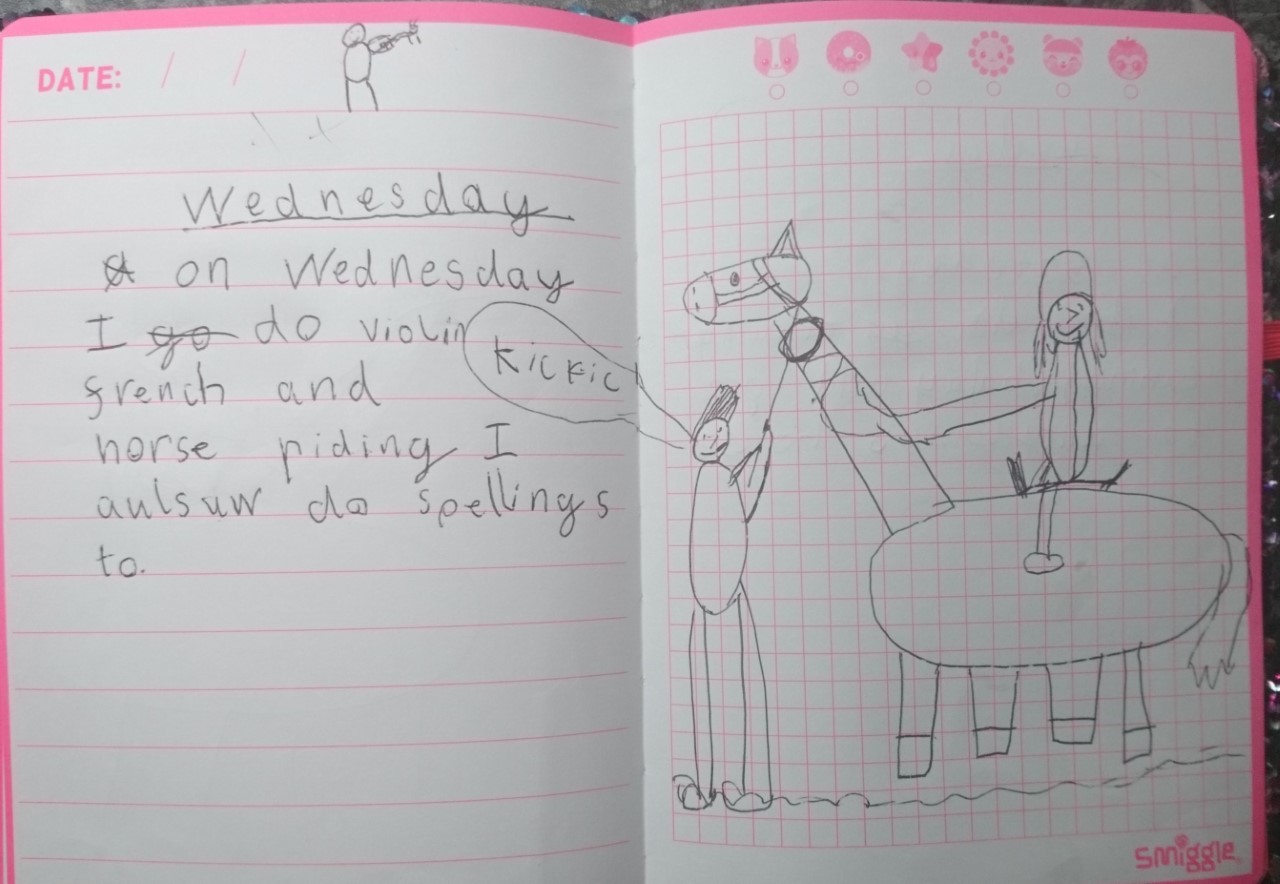 DATE: / /
Wednesday
on Wednesday
I go do violin
french and
horse riding I
aulsuw do spellings
to.
kickic
smiggle